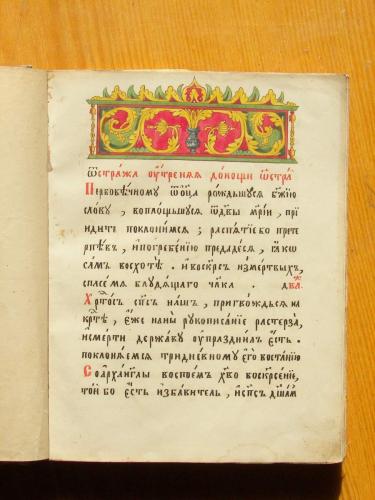 Ѿстража ѹтренѧѧ донощи ѿстра
Первовѣчному ѿѻца рождьшусѧ бж҃їю
слову , воплощьшусѧ ѿдв҃ы мр҃їи , прї
идитъ поклонимсѧ ; распѧтїе бо прете
рпѣвъ , ипогребенїю предадесѧ , ꙗкѡ
самъ восхотѣ . ивоскр҃съ измертвыхъ ,
спасе мѧ блудѧщаго чл҃ка .
Хрⷭ҇тосъ сп҃съ нашъ , пригвождьсѧ на
крⷭ҇тѣ , еже наны рукописанїе растерза ,
исмерти державу ѹпразднилъ есть .
поклонѧемсѧ тридневному его востанїю
Соархангг҃лы воспоемъ хв҃о воскрⷭ҇енїе ,
той бо есть избавитель , исп҃съ дш҃амъ